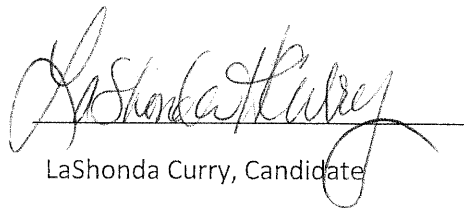 LaShonda H Curry
LaShonda Curry, Candidate